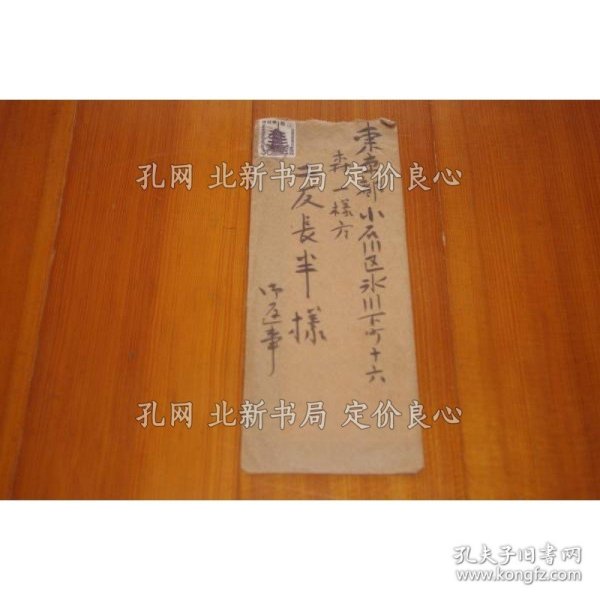 東京都小石川区氷川下町十六
森一様方
長半様
孔网 北新书局 定价良心
孔网 北新书局 定价良心
孔夫子旧书网
www.kongfz.com